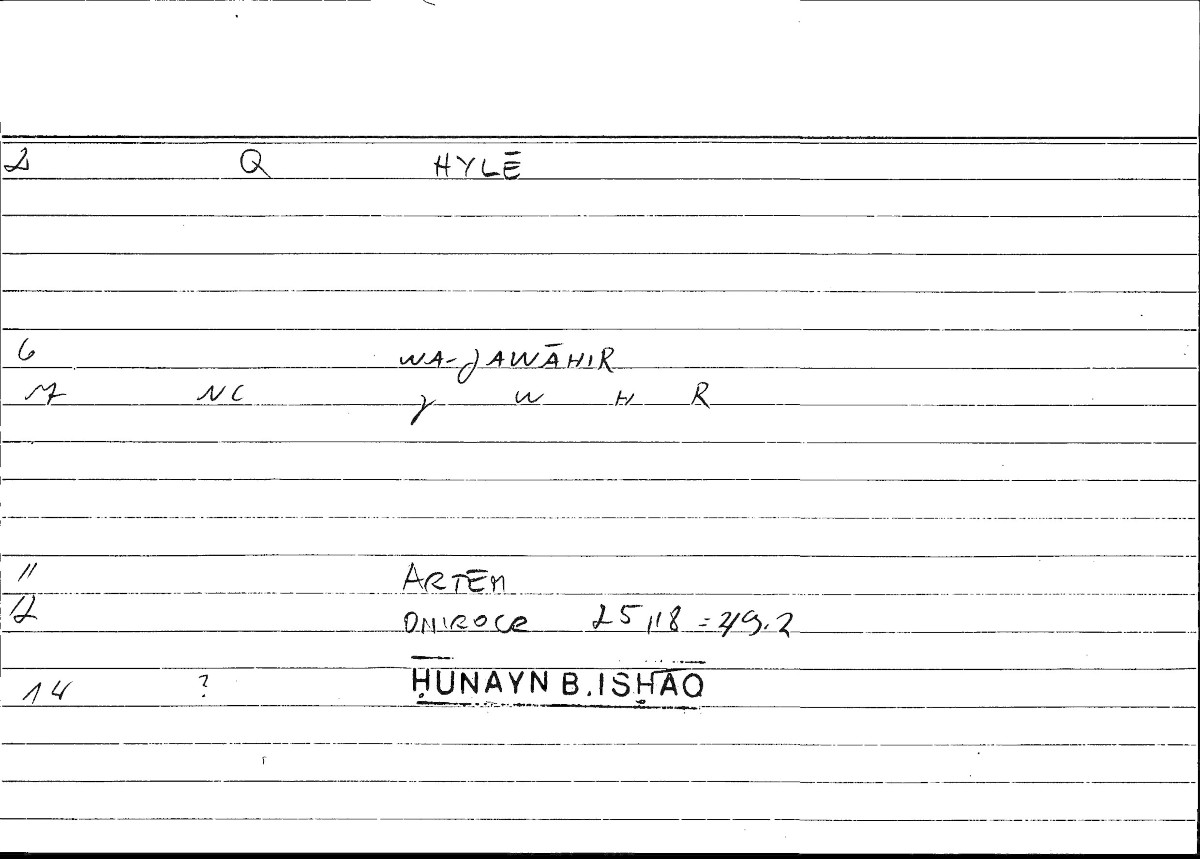 2 Q HYLĒ
6 WA-JAWĀHIR
7 NC J W H R
11 ARTEM
12 ONIROCR 25,18 = 49.2
14 ? ḤUNAYN B. ISḤĀQ